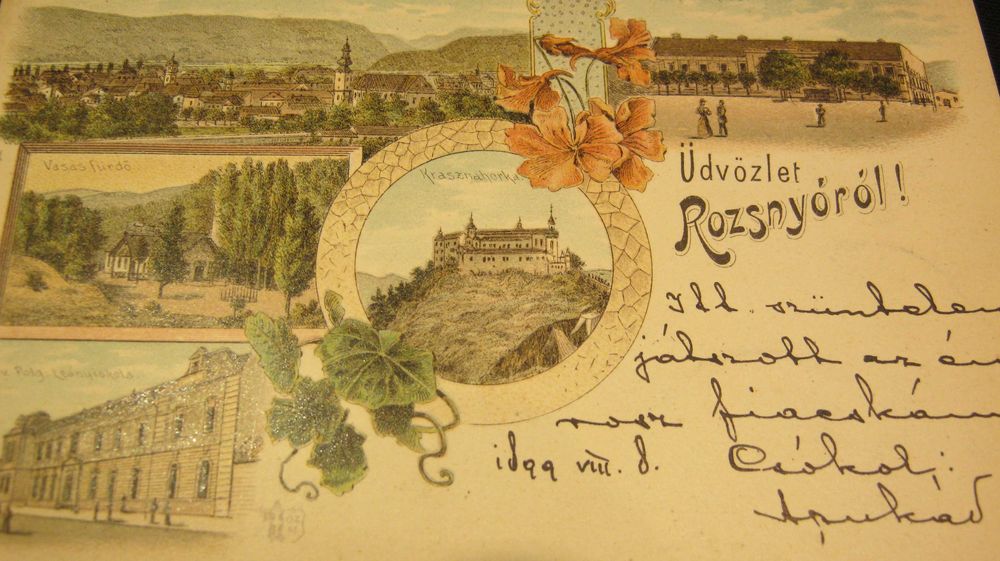 Vasas fürdő
Krasznahorka
Üdvözlet
Rozsnyóról!
v. Polg. Leányiskola
Itt szüntelen
játszott az én
rosz fiacskám
1899 VIII. 8. Csókol:
Apukád